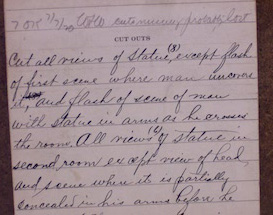 7 OR 7/7/22
CUT OUTS
Cut all views of statue,(8) except flash
of first scene where man uncovers
it, and flash of scene of man
with statue in arms as he crosses
the room. All views(6) of statue in
second room except view of head,
and scene where it is partially
concealed in his arms before he